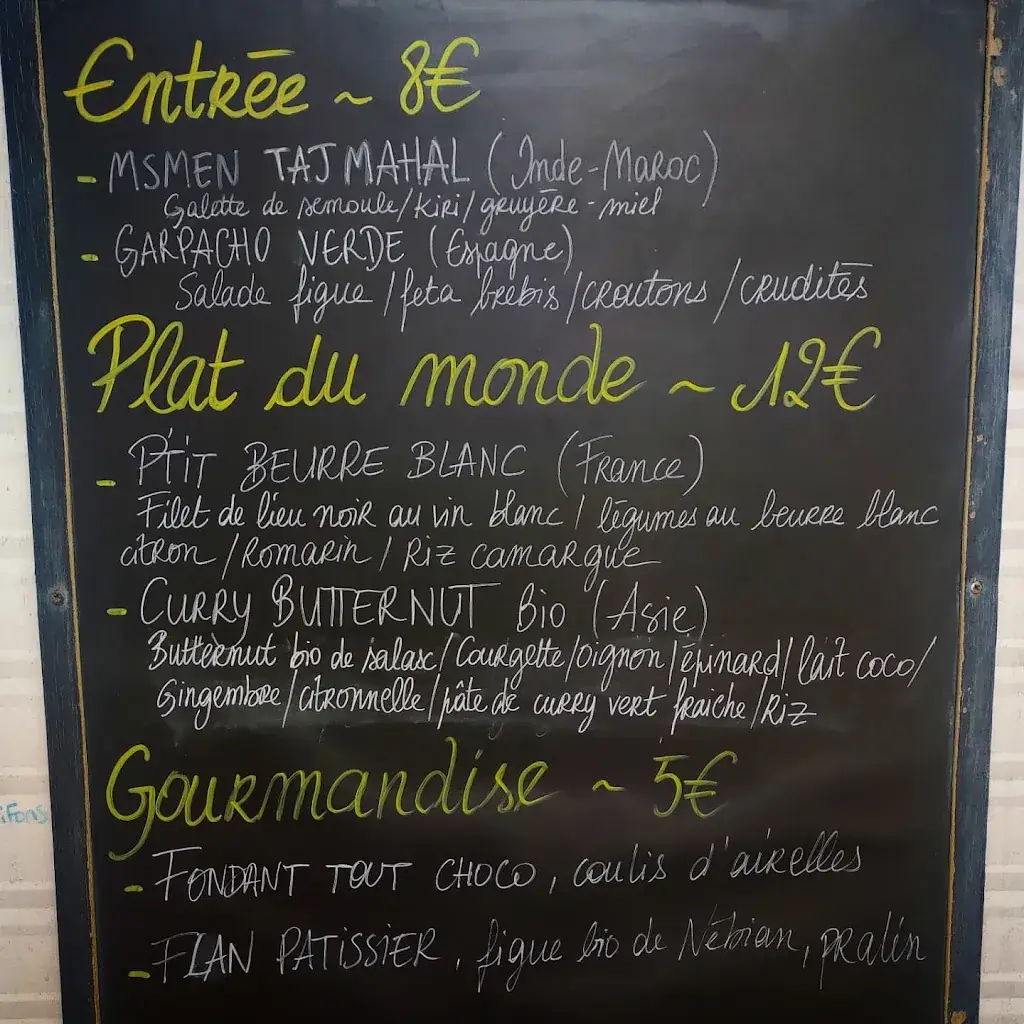 Entrée ~ 8€
- MSMEN TAJ MAHAL (Inde-Maroc)
Galette de semoule/kiri/gruyère-miel
- GARPACHO VERDE (Espagne)
Salade figue/feta brebis/croutons/crudités
Plat du monde ~ 12€
- P'tit BEURRE BLANC (France)
Filet de lieu noir au vin blanc/légumes au beurre blanc
citron/Romarin/Riz camargue
- CURRY BUTTERNUT Bio (Asie)
Butternut bio de salasc/Courgette/oignon/épinard/lait coco/
Gingembre/citronnelle/pâte de curry vert fraiche/Riz
Gourmandise ~ 5€
- FONDANT TOUT CHOCO, coulis d'airelles
- FLAN PATISSIER, figue bio de Nébian, pralin
ifons